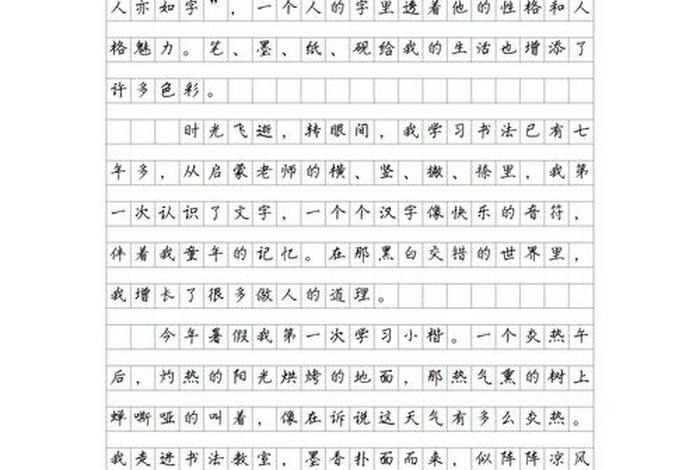 人亦如字”，一个人的字里透着他的性格和人
格魅力。笔、墨、纸、砚给我的生活也增添了
许多色彩。
时光飞逝，转眼间，我学习书法已有七
年多，从启蒙老师的横、竖、撇、捺里，我第
一次认识了文字，一个个汉字像快乐的音符，
伴着我童年的记忆。在那黑白交错的世界里，
我增长了很多做人的道理。
今年暑假我第一次学习小楷。一个炎热午
后，灼热的阳光烘烤的地面，那热气熏的树上
蝉嘶哑的叫着，像在诉说这天气有多么炎热。
我走进书法教室，墨香扑面而来，似阵阵凉风